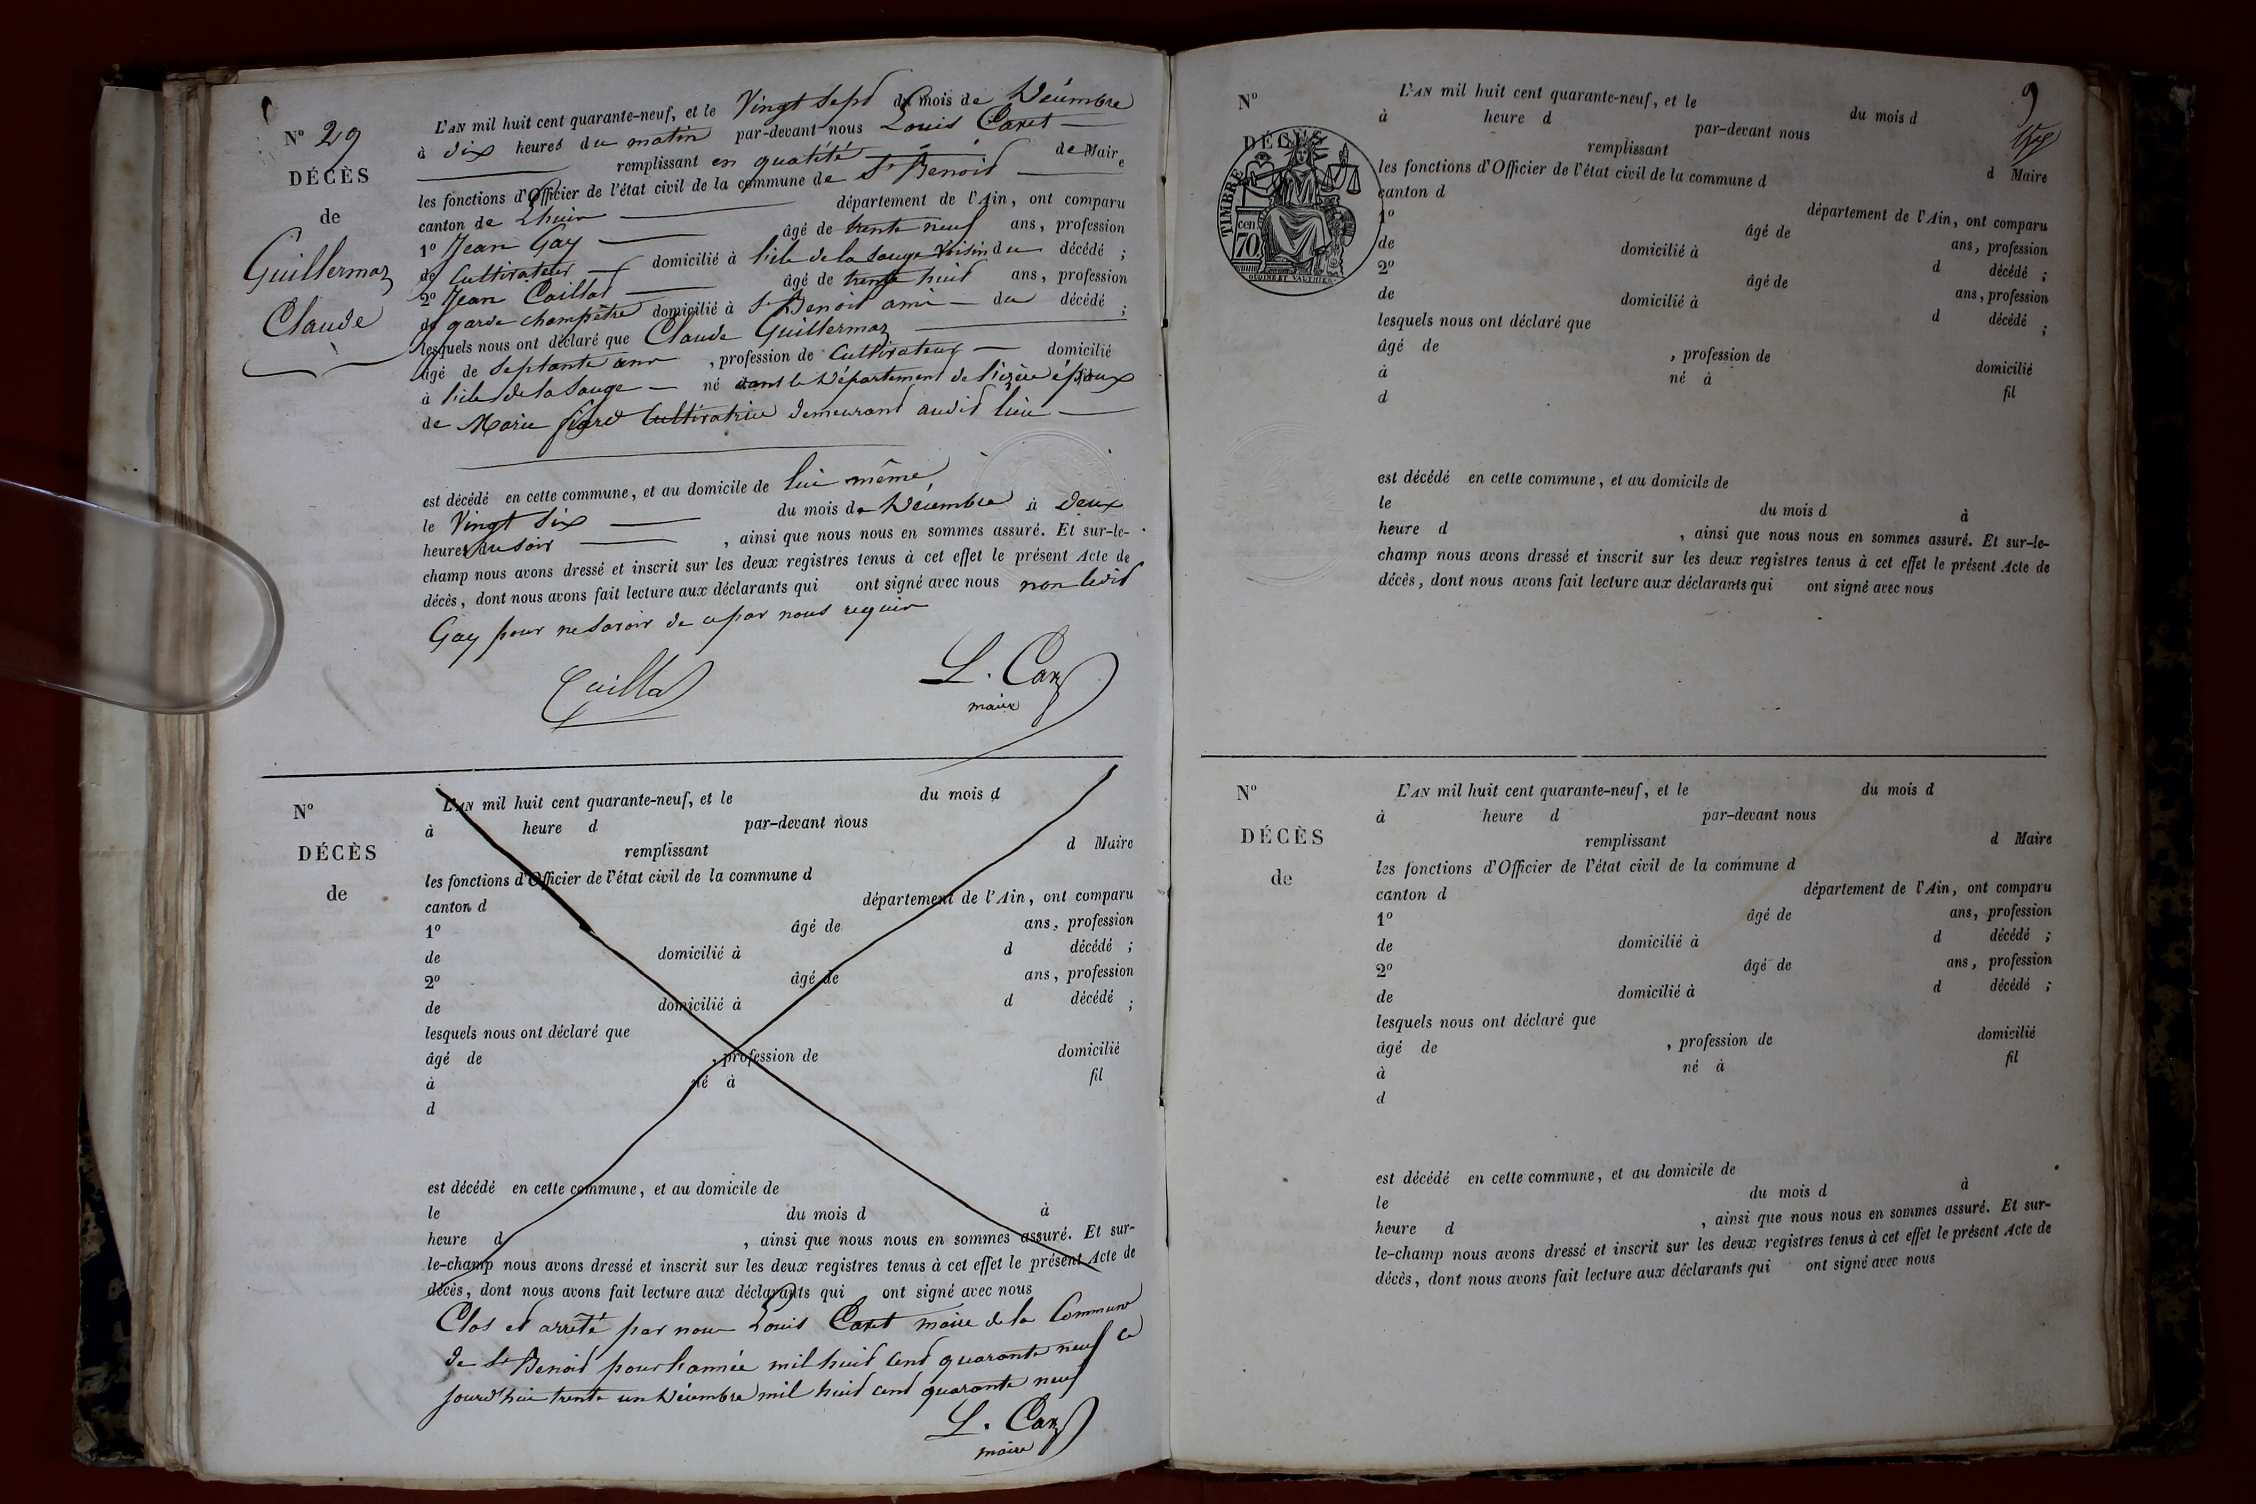 N° 29
DÉCÈS
de
Guillermoz
Claude
L'AN mil huit cent quarante-neuf, et le Vingt Sept du mois de Décembre
à dix heures du matin par-devant nous Louis Caret
remplissant en qualité de Maire
les fonctions d'Officier de l'état civil de la commune de St Benoit
canton de Lhuis département de l'Ain, ont comparu
1° Jean Gay âgé de trente neuf ans, profession
de Cultivateur domicilié à l'isle de la Sauge voisin du décédé ;
2° Jean Caillat âgé de trente huit ans, profession
de garde champêtre domicilié à St Benoit ami du décédé ;
lesquels nous ont déclaré que Claude Guillermoz
âgé de Septante ans , profession de Cultivateur domicilié
à l'isle de la Sauge né dans le Département de l'isère époux
de Marie Cultivatrice demeurant audit lieu
est décédé en cette commune, et au domicile de lui même,
le Vingt Six du mois de Décembre à Deux
heures du soir , ainsi que nous nous en sommes assuré. Et sur-le-
champ nous avons dressé et inscrit sur les deux registres tenus à cet effet le présent Acte de
décès, dont nous avons fait lecture aux déclarants qui ont signé avec nous non ledit
Gay pour ne savoir de ce par nous requis
Caillat
L. Caret
maire
N°
DÉCÈS
de
L'AN mil huit cent quarante-neuf, et le du mois d
à heure d par-devant nous
remplissant d Maire
les fonctions d'Officier de l'état civil de la commune d
canton d département de l'Ain, ont comparu
1° âgé de ans, profession
de domicilié à d décédé ;
2° âgé de ans, profession
de domicilié à d décédé ;
lesquels nous ont déclaré que
âgé de , profession de domicilié
à né à fil
d
est décédé en cette commune, et au domicile de
le du mois d à
heure d , ainsi que nous nous en sommes assuré. Et sur-
le-champ nous avons dressé et inscrit sur les deux registres tenus à cet effet le présent Acte de
décès, dont nous avons fait lecture aux déclarants qui ont signé avec nous
Clos et arrêté par nous Louis Caret maire de la Commune
de St Benoit pour l'année mil huit cent quarante neuf ce
jourd'hui trente un Décembre mil huit cent quarante neuf
L. Caret
maire
9
N°
DÉCÈS
TIMBRE
cen
70
OUDINE ET VAUTHIER
L'AN mil huit cent quarante-neuf, et le du mois d
à heure d par-devant nous
remplissant d Maire
les fonctions d'Officier de l'état civil de la commune d
canton d département de l'Ain, ont comparu
1° âgé de ans, profession
de domicilié à d décédé ;
2° âgé de ans, profession
de domicilié à d décédé ;
lesquels nous ont déclaré que
âgé de , profession de domicilié
à né à fil
d
est décédé en cette commune, et au domicile de
le du mois d à
heure d , ainsi que nous nous en sommes assuré. Et sur-le-
champ nous avons dressé et inscrit sur les deux registres tenus à cet effet le présent Acte de
décès, dont nous avons fait lecture aux déclarants qui ont signé avec nous
N°
DÉCÈS
de
L'AN mil huit cent quarante-neuf, et le du mois d
à heure d par-devant nous
remplissant d Maire
les fonctions d'Officier de l'état civil de la commune d
canton d département de l'Ain, ont comparu
1° âgé de ans, profession
de domicilié à d décédé ;
2° âgé de ans, profession
de domicilié à d décédé ;
lesquels nous ont déclaré que
âgé de , profession de domicilié
à né à fil
d
est décédé en cette commune, et au domicile de
le du mois d à
heure d , ainsi que nous nous en sommes assuré. Et sur-
le-champ nous avons dressé et inscrit sur les deux registres tenus à cet effet le présent Acte de
décès, dont nous avons fait lecture aux déclarants qui ont signé avec nous